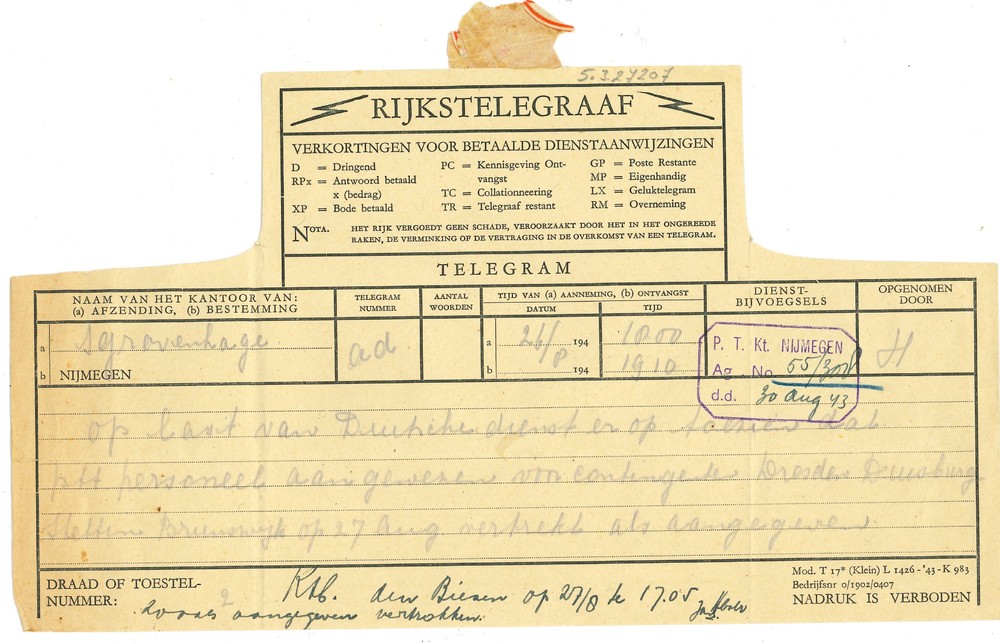 5.3.27207
RIJKSTELEGRAAF
VERKORTINGEN VOOR BETAALDE DIENSTAANWIJZINGEN
D = Dringend
RPx = Antwoord betaald x (bedrag)
XP = Bode betaald
PC = Kennisgeving Ontvangst
TC = Collationneering
TR = Telegraaf restant
GP = Poste Restante
MP = Eigenhandig
LX = Geluktelegram
RM = Overneming
NOTA. HET RIJK VERGOEDT GEEN SCHADE, VEROORZAAKT DOOR HET IN HET ONGEREEDE
RAKEN, DE VERMINKING OF DE VERTRAGING IN DE OVERKOMST VAN EEN TELEGRAM.
TELEGRAM
NAAM VAN HET KANTOOR VAN:
(a) AFZENDING, (b) BESTEMMING
TELEGRAM NUMMER
AANTAL WOORDEN
TIJD VAN (a) AANNEMING, (b) ONTVANGST
DATUM
TIJD
DIENST-BIJVOEGSELS
OPGENOMEN DOOR
a sgravenhage ad a 26/8 194 1800 H
b NIJMEGEN b 194 1910
P. T. Kt. NIJMEGEN
Ag. No. 55/308
d.d. 30 aug 43
op last van Duitsche dienst er op toezien dat
ptt personeel aangewezen voor contingente Dresden Duisburg
Stettin Brunswijk op 27 aug vertrekt als aangegeven
DRAAD OF TOESTEL-
NUMMER:
Ktb. den Biesen op 27/8 te 17.05
zooals aangegeven vertrokken.
2
Mod. T 17* (Klein) L 1426-'43-K 983
Bedrijfsnr 0/1902/0407
NADRUK IS VERBODEN